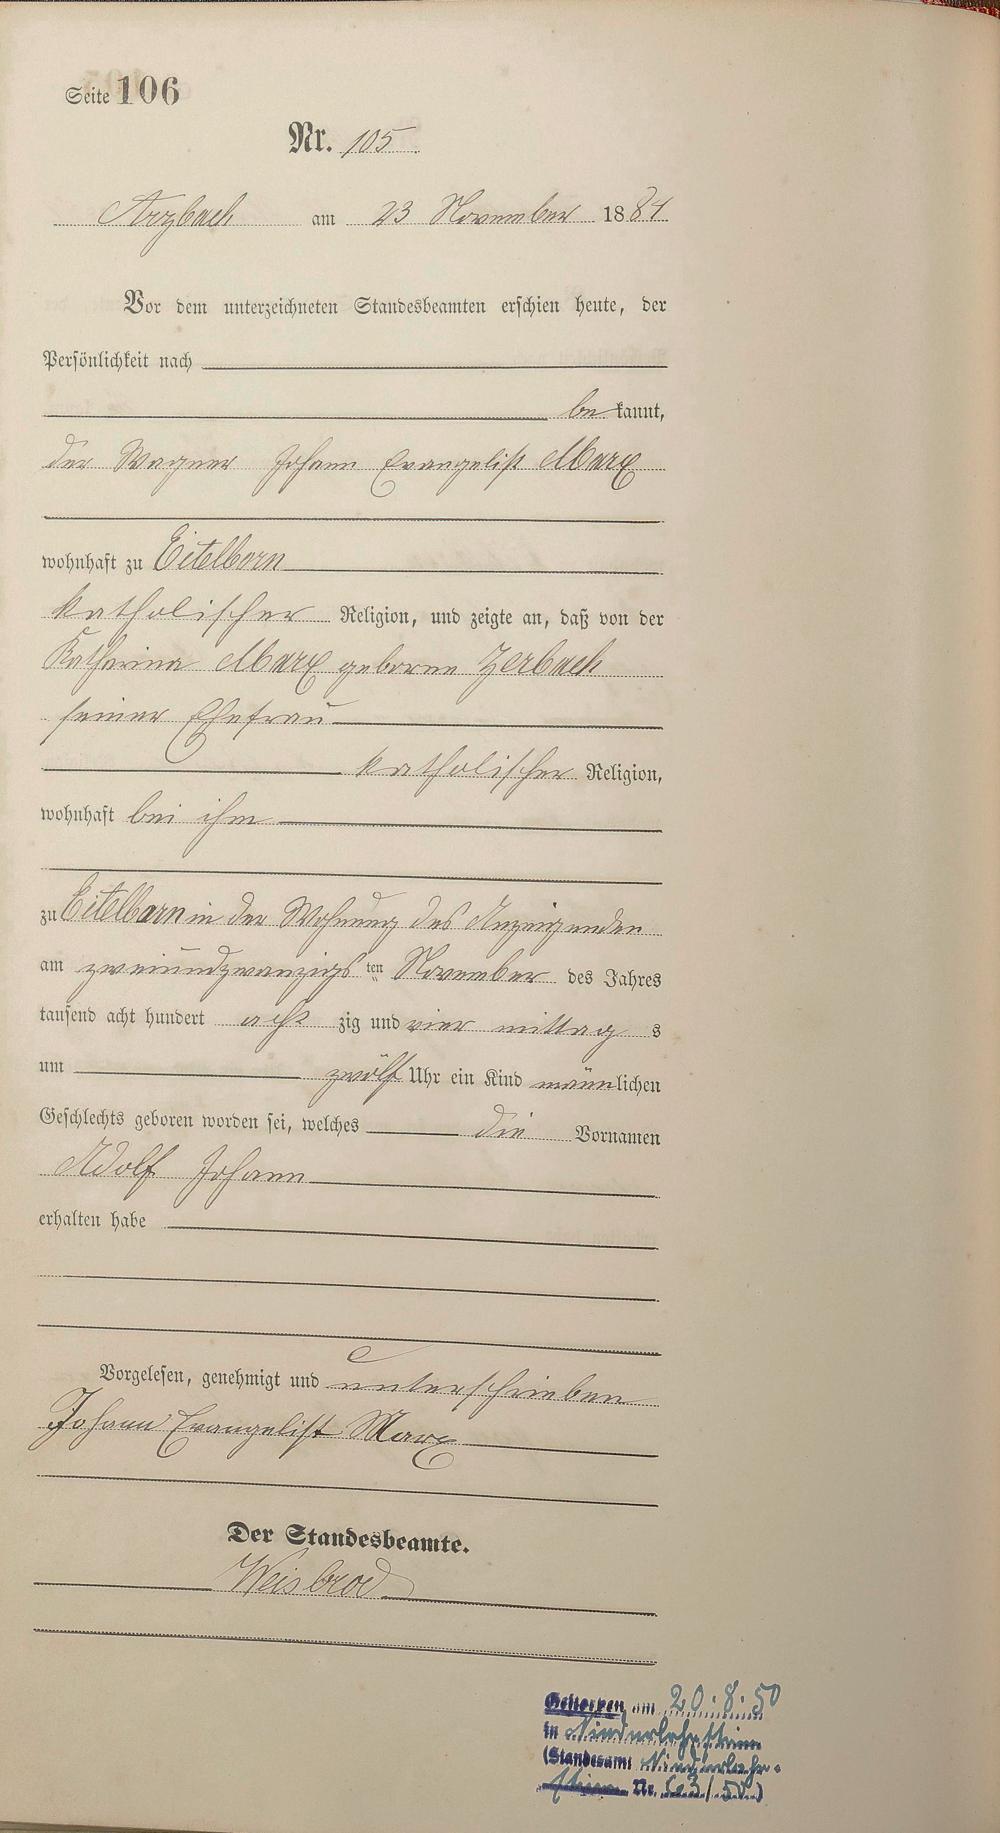 Seite 106
Nr. 105.
Arzbach am 23 November 1884
Vor dem unterzeichneten Standesbeamten erschien heute, der
Persönlichkeit nach
be kannt,
der Wagner Johann Evangelist Marx
wohnhaft zu Eitelborn
katholischer Religion, und zeigte an, daß von der
Katharina Marx geborne Zerbach
seiner Ehefrau
katholischer Religion,
wohnhaft bei ihm
zu Eitelborn in der Wohnung des Anzeigenden
am zweiundzwanzigs ten November des Jahres
tausend acht hundert acht zig und vier mittag s
um zwölf Uhr ein Kind männlichen
Geschlechts geboren worden sei, welches die Vornamen
Adolf Johann
erhalten habe
Vorgelesen, genehmigt und unterschrieben
Johann Evangelist Marx
Der Standesbeamte.
Weisbrod
Gestorben am 20.8.50
in Niederlahnstein
(Standesamt Niederlahn-
stein Nr. 63/50)